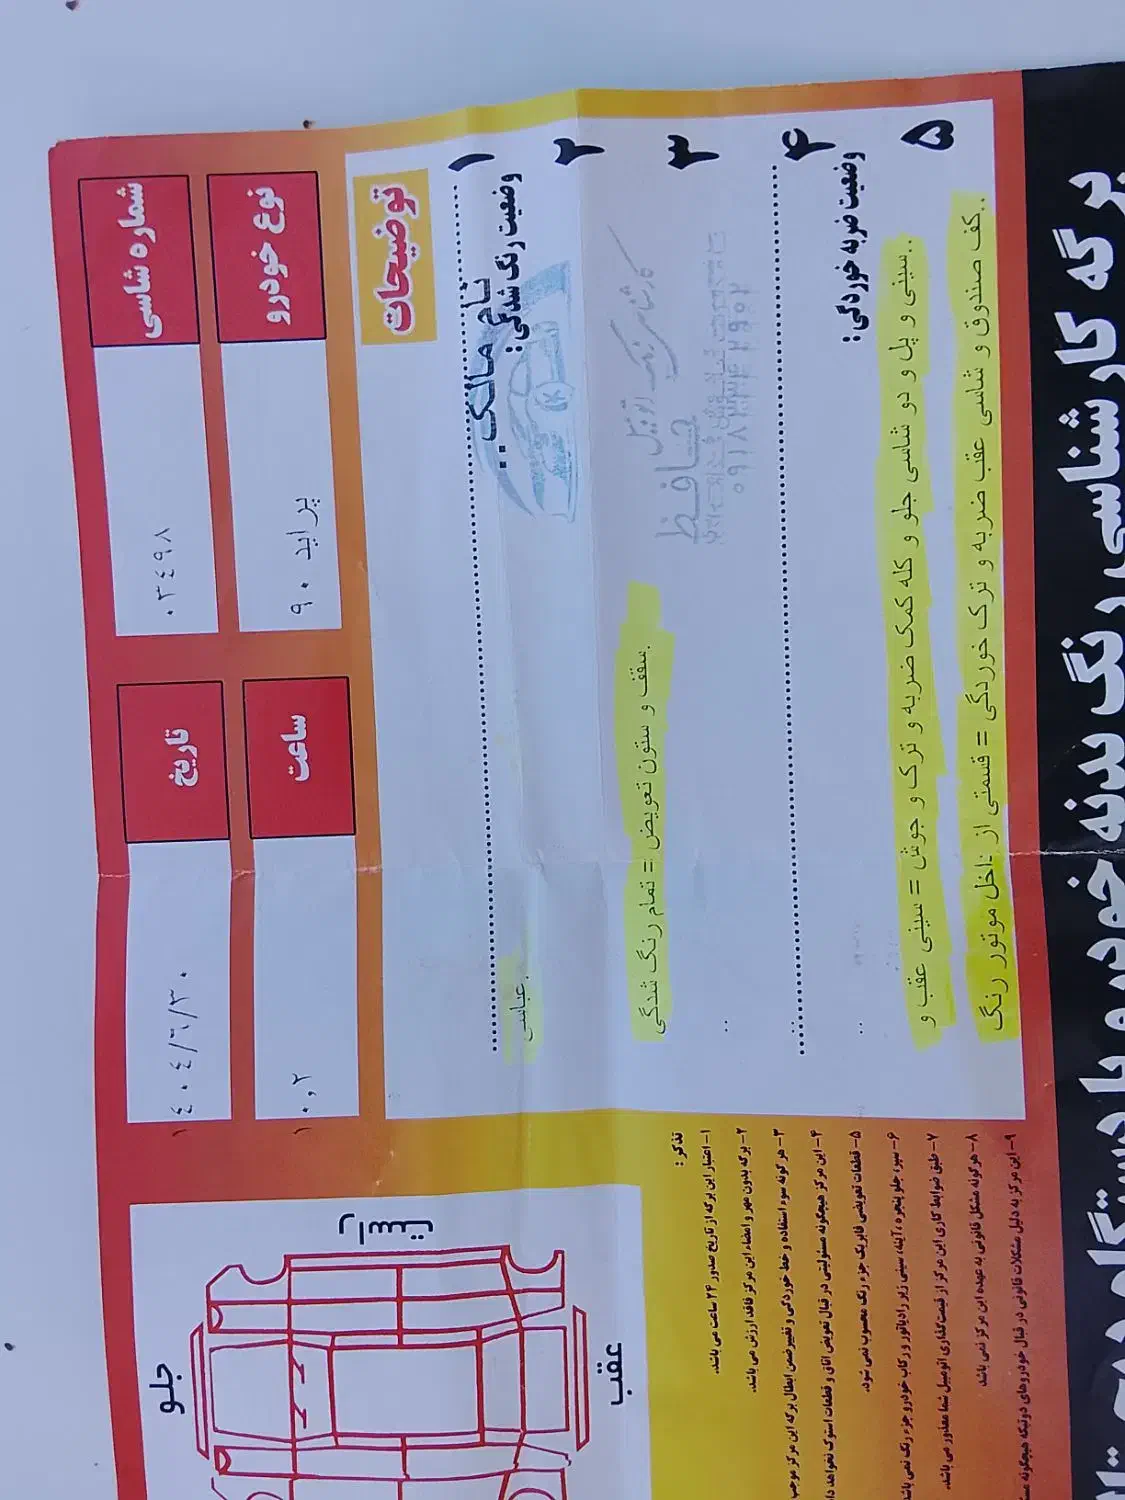 برگه کارشناسی رنگ بدنه خودرو با دستگاه
شماره شاسی
۰۳۴۹۸
تاریخ
۱۴۰۴/۶/۳۰
نوع خودرو
پراید ۹۰
ساعت
۱۰,۲
توضیحات
۱
نام مالک..
عباسی
وضعیت رنگ شدگی:
۲
۳
سقف و ستون تعویض = تمام رنگ شدگی
کارشناسی رنگ اتومبیل
حافظ
۴
وضعیت ضربه خوردگی:
۵
..سینی و پل و دو شاسی جلو و کله کمک ضربه و ترک و جوش = سینی عقب و
..کف صندوق و شاسی عقب ضربه و ترک خوردگی = قسمتی از داخل موتور رنگ
جلو
راست
عقب
تذکر:
۱- اعتبار این برگه از تاریخ صدور ۲۴ ساعت می باشد.
۲- برگه بدون مهر و امضاء این مرکز فاقد ارزش می باشد.
۳- هر گونه سوء استفاده و خط خوردگی و تغییر ضمن ابطال برگه این مرکز موجب
۴- این مرکز هیچگونه مسئولیتی در قبال تعویض اتاق و قطعات استوک نخواهد
۵- قطعات تعویضی فابریک جزء رنگ محسوب نمی شود.
۶- سپر، جلو پنجره، آینه، سینی زیر رادیاتور و رکاب خودرو جزء رنگ نمی
۷- طبق ضوابط کاری این مرکز از قیمت گذاری اتومبیل شما معذور می باشد.
۸- هرگونه مشکل قانونی به عهده این مرکز نمی باشد
۹- این مرکز به دلیل مشکلات قانونی در قبال خودروهای دوتیکه هیچگونه